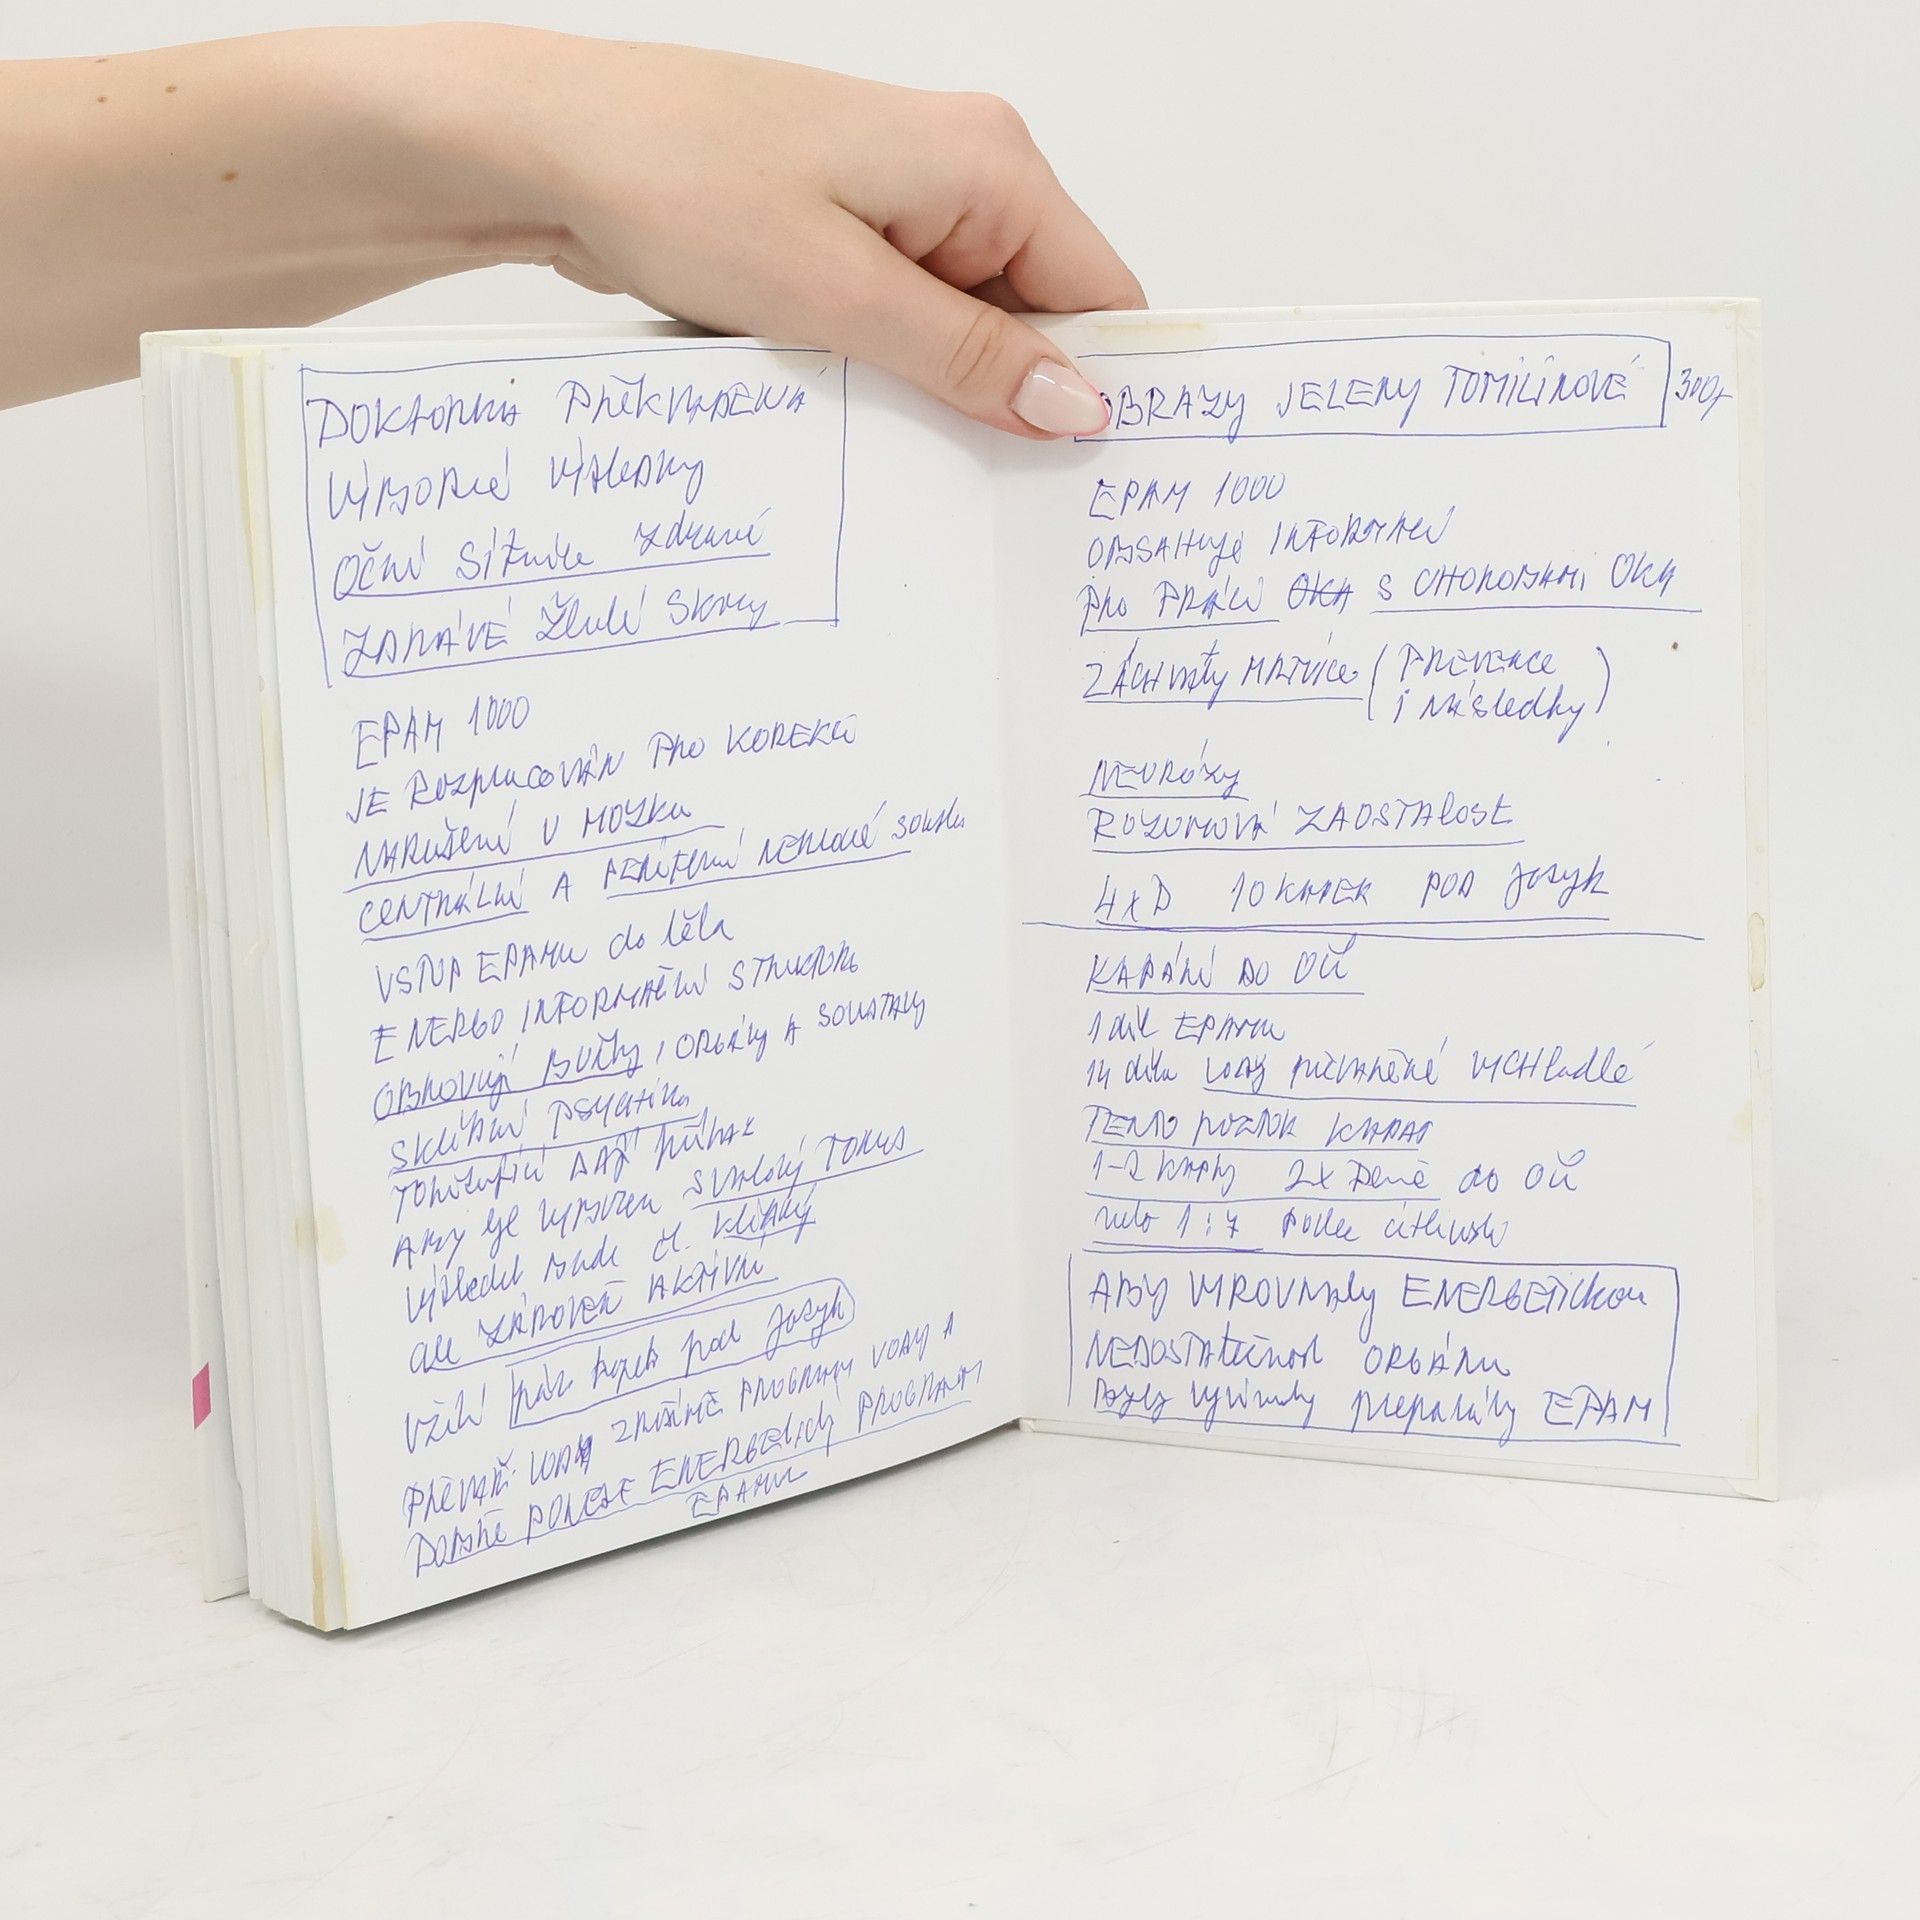 DOKTORKA PřEKVAPENÁ
VÝBORNÉ VÝSLEDKY
OČNí Sítnice zdravé
ZDRAVÉ Žluté Skvrny
EPAM 1000
JE ROZpracován Pro KOREKCI
NARUŠENí V MOZKU
CENTRÁLNí A PERIFERNí NERVOVÉ Soustavy
VSTUP EPAMU do těla
ENERGO INFORMAČNí STRUKTURY
OBNOVUJí BUŇKY, ORGÁNY A SOUSTAVY
Sklíčení PSYCHIKA
Tonizující DAJí Příkaz
ABY BYL VYBAVEN SVALOVÝ TONUS
Výsledek bude čl. klidný
ale ZÁROVEŇ AKTIVNí
Užití pár kapek pod jazyk
PřEVAř. VODA PROGRAMY VODY A
DOBřE PONESE ENERGETICKÝ PROGRAM
EPAMU
OBRAZY JELENY TOMILINOVÉ 300,-
EPAM 1000
OBSAHUJE INFORMACí
Pro PRÁCI S CHOROBAMI OKA
ZÁCHVATY MRTVICE (PREVENCE
i Následky)
NEURÓZY
ROZUMOVÁ ZAOSTALOST
4xD 10 KAPEK POD Jazyk
KAPÁNí DO OČí
1 díl EPAMU
14 dílů vody převařené VYCHladlé
TENTO ROZTOK KAPAT
1-2 KAPKY 2x Denně do OČí
nebo 1:7 Podle citlivosti
ABY VYROVNALY ENERGETICKOU
NEDOSTATEČNOST ORGÁNU
byly vyvinuty preparáty EPAM